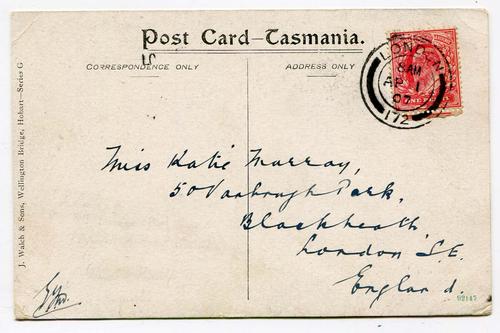 Post Card–Tasmania.
CORRESPONDENCE ONLY
ADDRESS ONLY
LONDON
8 AM
AP 1
07
172
ONE PENNY
Miss Katie Murray,
50 Vanbrugh Park,
Blackheath,
London S.E.
England.
J. Walch & Sons, Wellington Bridge, Hobart—Series G
92147